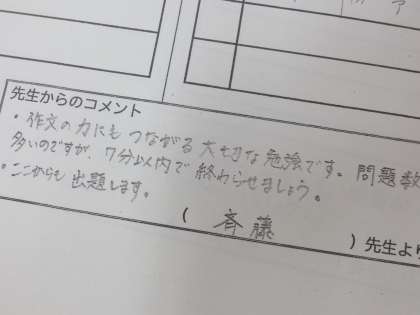 先生からのコメント
・作文の力にもつながる大切な勉強です。問題数
多いのですが、7分以内で終わらせましょう。
・ここからも出題します。
(斉藤)先生より